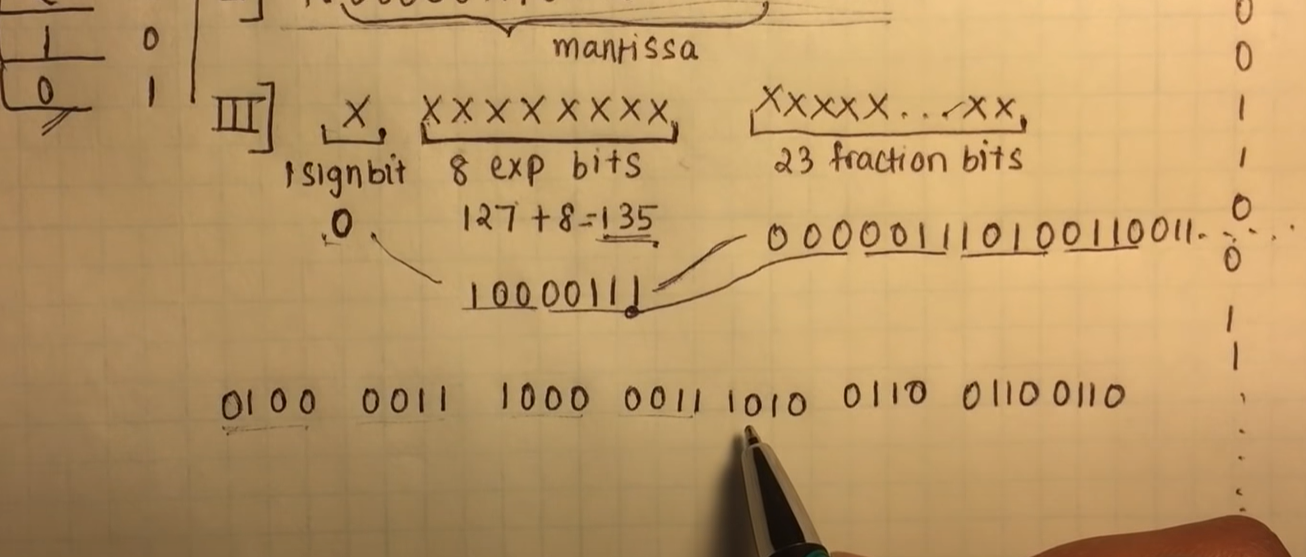 1 0
0 1
mantissa
III] X XXXXXXXX XXXXX...XX
1 sign bit 8 exp bits 23 fraction bits
0 127+8=135 000001110100110011...
10000111
0100 0011 1000 0011 1010 0110 01100110
0
0
1
1
0
0
1
1